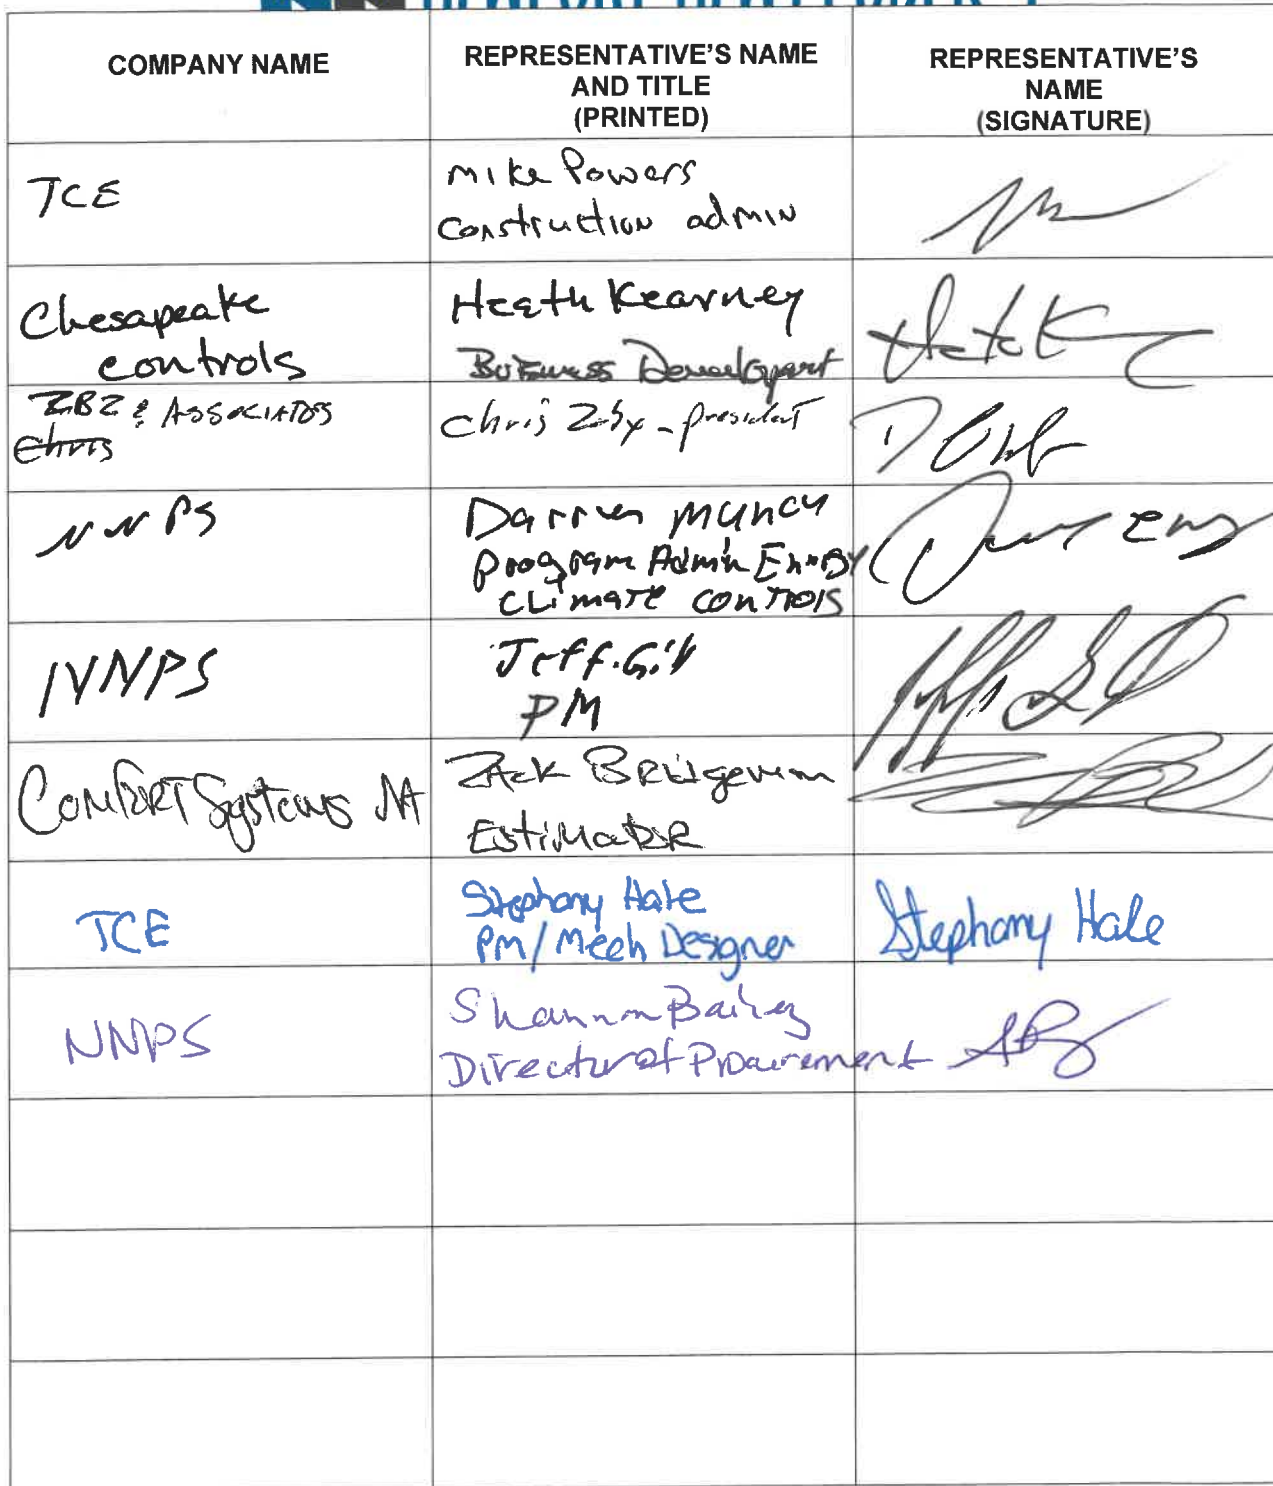 COMPANY NAME
REPRESENTATIVE'S NAME
AND TITLE
(PRINTED)
REPRESENTATIVE'S
NAME
(SIGNATURE)
TCE
Mike Powers
Construction admin
Chesapeake
controls
Heath Kearney
Business Development
ZBZ & ASSOCIATES
Chris
Chris - president
NNPS
Darren Muncy
Program Admin Energy
CLIMATE CONTROLS
NNPS
Jeff Gill
PM
COMFORT Systems
Zack
Estimator
TCE
Stephany Hale
PM/Mech Designer
Stephany Hale
NNPS
Shannon Bailey
Director of Procurement